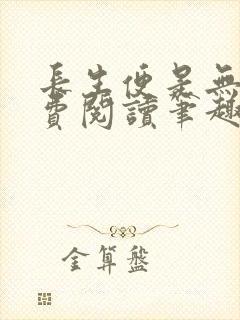 長生便是無
費閱讀筆趣
金算盤